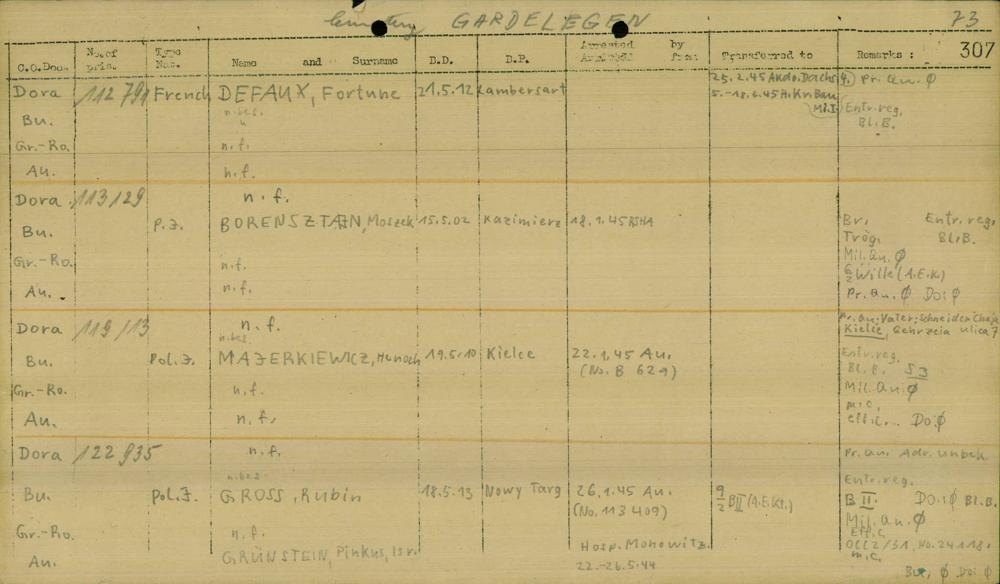 Cemetery GARDELEGEN 73
C.C.Doc. No.of pris. Type Nat. Name and Surname B.D. B.P. Arrested by Arrived from Transferred to Remarks : 307
Dora 112 791 French DEFAUX, Fortune 21.5.12 Lambersart 25.2.45 Akdo. Dachs 4. Pr. Qu. Ø
n.bes. 5.-18.2.45 H.Kr.Bau
Bu. " M.I. Entr.reg.
Bl.B.
Gr.-Ro. n.f.
Au. n.f.
Dora 113/29 n.f.
Bu. P.J. BORENSZTAJN, Moszek 15.5.02 Kazimierz 18.1.45 RSHA Br. Entr. reg.
Trög. Bl.B.
Gr.-Ro. n.f. Mil. Qu. Ø
6/2 Wille (A.E.K.)
Au. n.f. Pr. an. Ø Do: Ø
Dora 119/13 n.f. Pr. an: Vater: Schneider Chaja
n.bes. Kielce, Gehrzeia ulica 7
Bu. Pol.J. MAJERKIEWICZ, Hunoch 19.5.10 Kielce 22.1.45 Au. Entr.reg.
(No. B 629) Bl.B. S3
Gr.-Ro. n.f. Mil. Qu. Ø
m.c.
Au. n.f. eff.c. Do: Ø
Dora 122 935 n.f. Pr. an. Adr. unbek.
n.bes. Entr.reg.
Bu. Pol.J. GROSS, Rubin 18.5.13 Nowy Targ 26.1.45 Au. 9/2 BII (A.E.Kt.) B II. Do: Ø Bl.B.
(No. 113 409) Mil. Qu. Ø
Gr.-Ro. n.f. Eff.C
Hosp. Monowitz. OCC2/31, No. 24118.
Au. GRÜNSTEIN, Pinkus, Isr. m.c.
22.-26.5.44 Bu. Ø Do: Ø